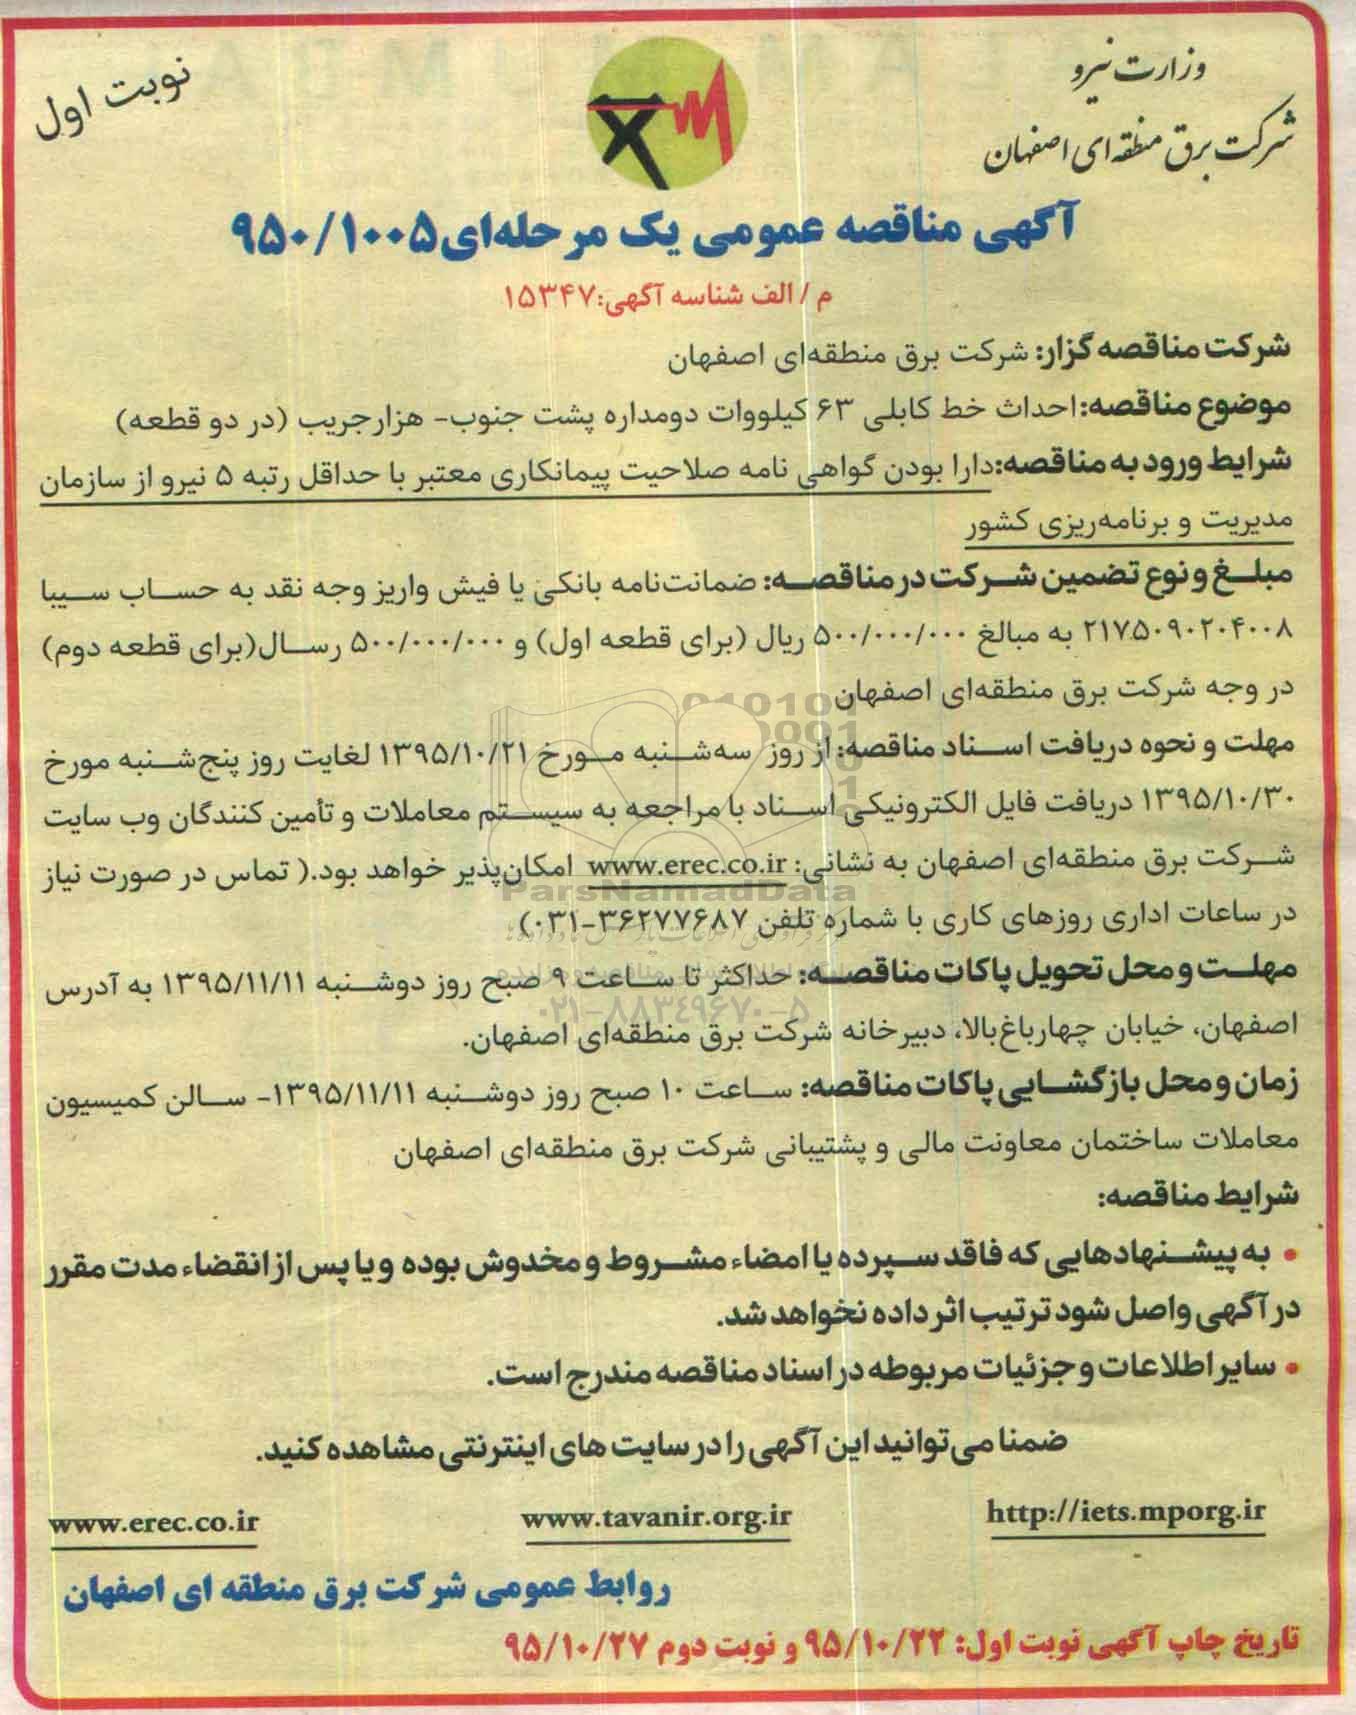 وزارت نیرو
شرکت برق منطقه ای اصفهان
نوبت اول
آگهی مناقصه عمومی یک مرحله‌ای ۹۵۰/۱۰۰۵
م / الف شناسه آگهی: ۱۵۳۴۷
شرکت مناقصه گزار: شرکت برق منطقه‌ای اصفهان
موضوع مناقصه: احداث خط کابلی ۶۳ کیلووات دومداره پشت جنوب- هزارجریب (در دو قطعه)
شرایط ورود به مناقصه: دارا بودن گواهی نامه صلاحیت پیمانکاری معتبر با حداقل رتبه ۵ نیرو از سازمان
مدیریت و برنامه‌ریزی کشور
مبلغ و نوع تضمین شرکت در مناقصه: ضمانت‌نامه بانکی یا فیش واریز وجه نقد به حساب سیبا
۲۱۷۵۰۹۰۲۰۴۰۰۸ به مبالغ ۵۰۰/۰۰۰/۰۰۰ ریال (برای قطعه اول) و ۵۰۰/۰۰۰/۰۰۰ رسال(برای قطعه دوم)
در وجه شرکت برق منطقه‌ای اصفهان
مهلت و نحوه دریافت اسناد مناقصه: از روز سه‌شنبه مورخ ۱۳۹۵/۱۰/۲۱ لغایت روز پنج‌شنبه مورخ
۱۳۹۵/۱۰/۳۰ دریافت فایل الکترونیکی اسناد با مراجعه به سیستم معاملات و تأمین کنندگان وب سایت
شرکت برق منطقه‌ای اصفهان به نشانی: www.erec.co.ir امکان‌پذیر خواهد بود.( تماس در صورت نیاز
در ساعات اداری روزهای کاری با شماره تلفن ۳۶۲۷۷۶۸۷-۰۳۱)
مهلت و محل تحویل پاکات مناقصه: حداکثر تا ساعت ۹ صبح روز دوشنبه ۱۳۹۵/۱۱/۱۱ به آدرس
اصفهان، خیابان چهارباغ‌بالا، دبیرخانه شرکت برق منطقه‌ای اصفهان.
زمان و محل بازگشایی پاکات مناقصه: ساعت ۱۰ صبح روز دوشنبه ۱۳۹۵/۱۱/۱۱- سالن کمیسیون
معاملات ساختمان معاونت مالی و پشتیبانی شرکت برق منطقه‌ای اصفهان
شرایط مناقصه:
• به پیشنهادهایی که فاقد سپرده یا امضاء مشروط و مخدوش بوده و یا پس از انقضاء مدت مقرر
در آگهی واصل شود ترتیب اثر داده نخواهد شد.
• سایر اطلاعات و جزئیات مربوطه در اسناد مناقصه مندرج است.
ضمنا می‌توانید این آگهی را در سایت های اینترنتی مشاهده کنید.
http://iets.mporg.ir
www.tavanir.org.ir
www.erec.co.ir
روابط عمومی شرکت برق منطقه ای اصفهان
تاریخ چاپ آگهی نوبت اول: ۹۵/۱۰/۲۲ و نوبت دوم ۹۵/۱۰/۲۷
ParsNamadData
۰۲۱-۸۸۳۴۹۶۷۰-۵